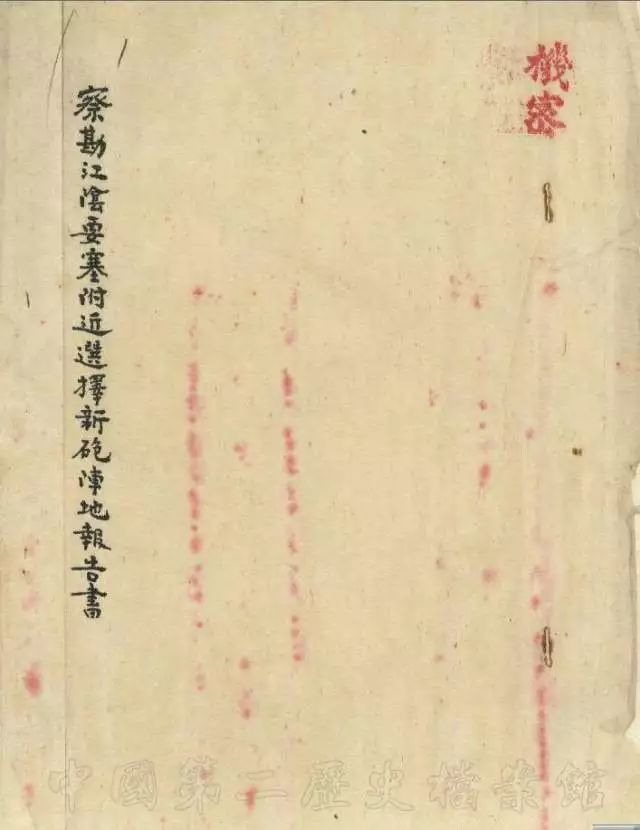 機密
察勘江陰要塞附近選擇新砲陣地報告書
中國第二歷史檔案館